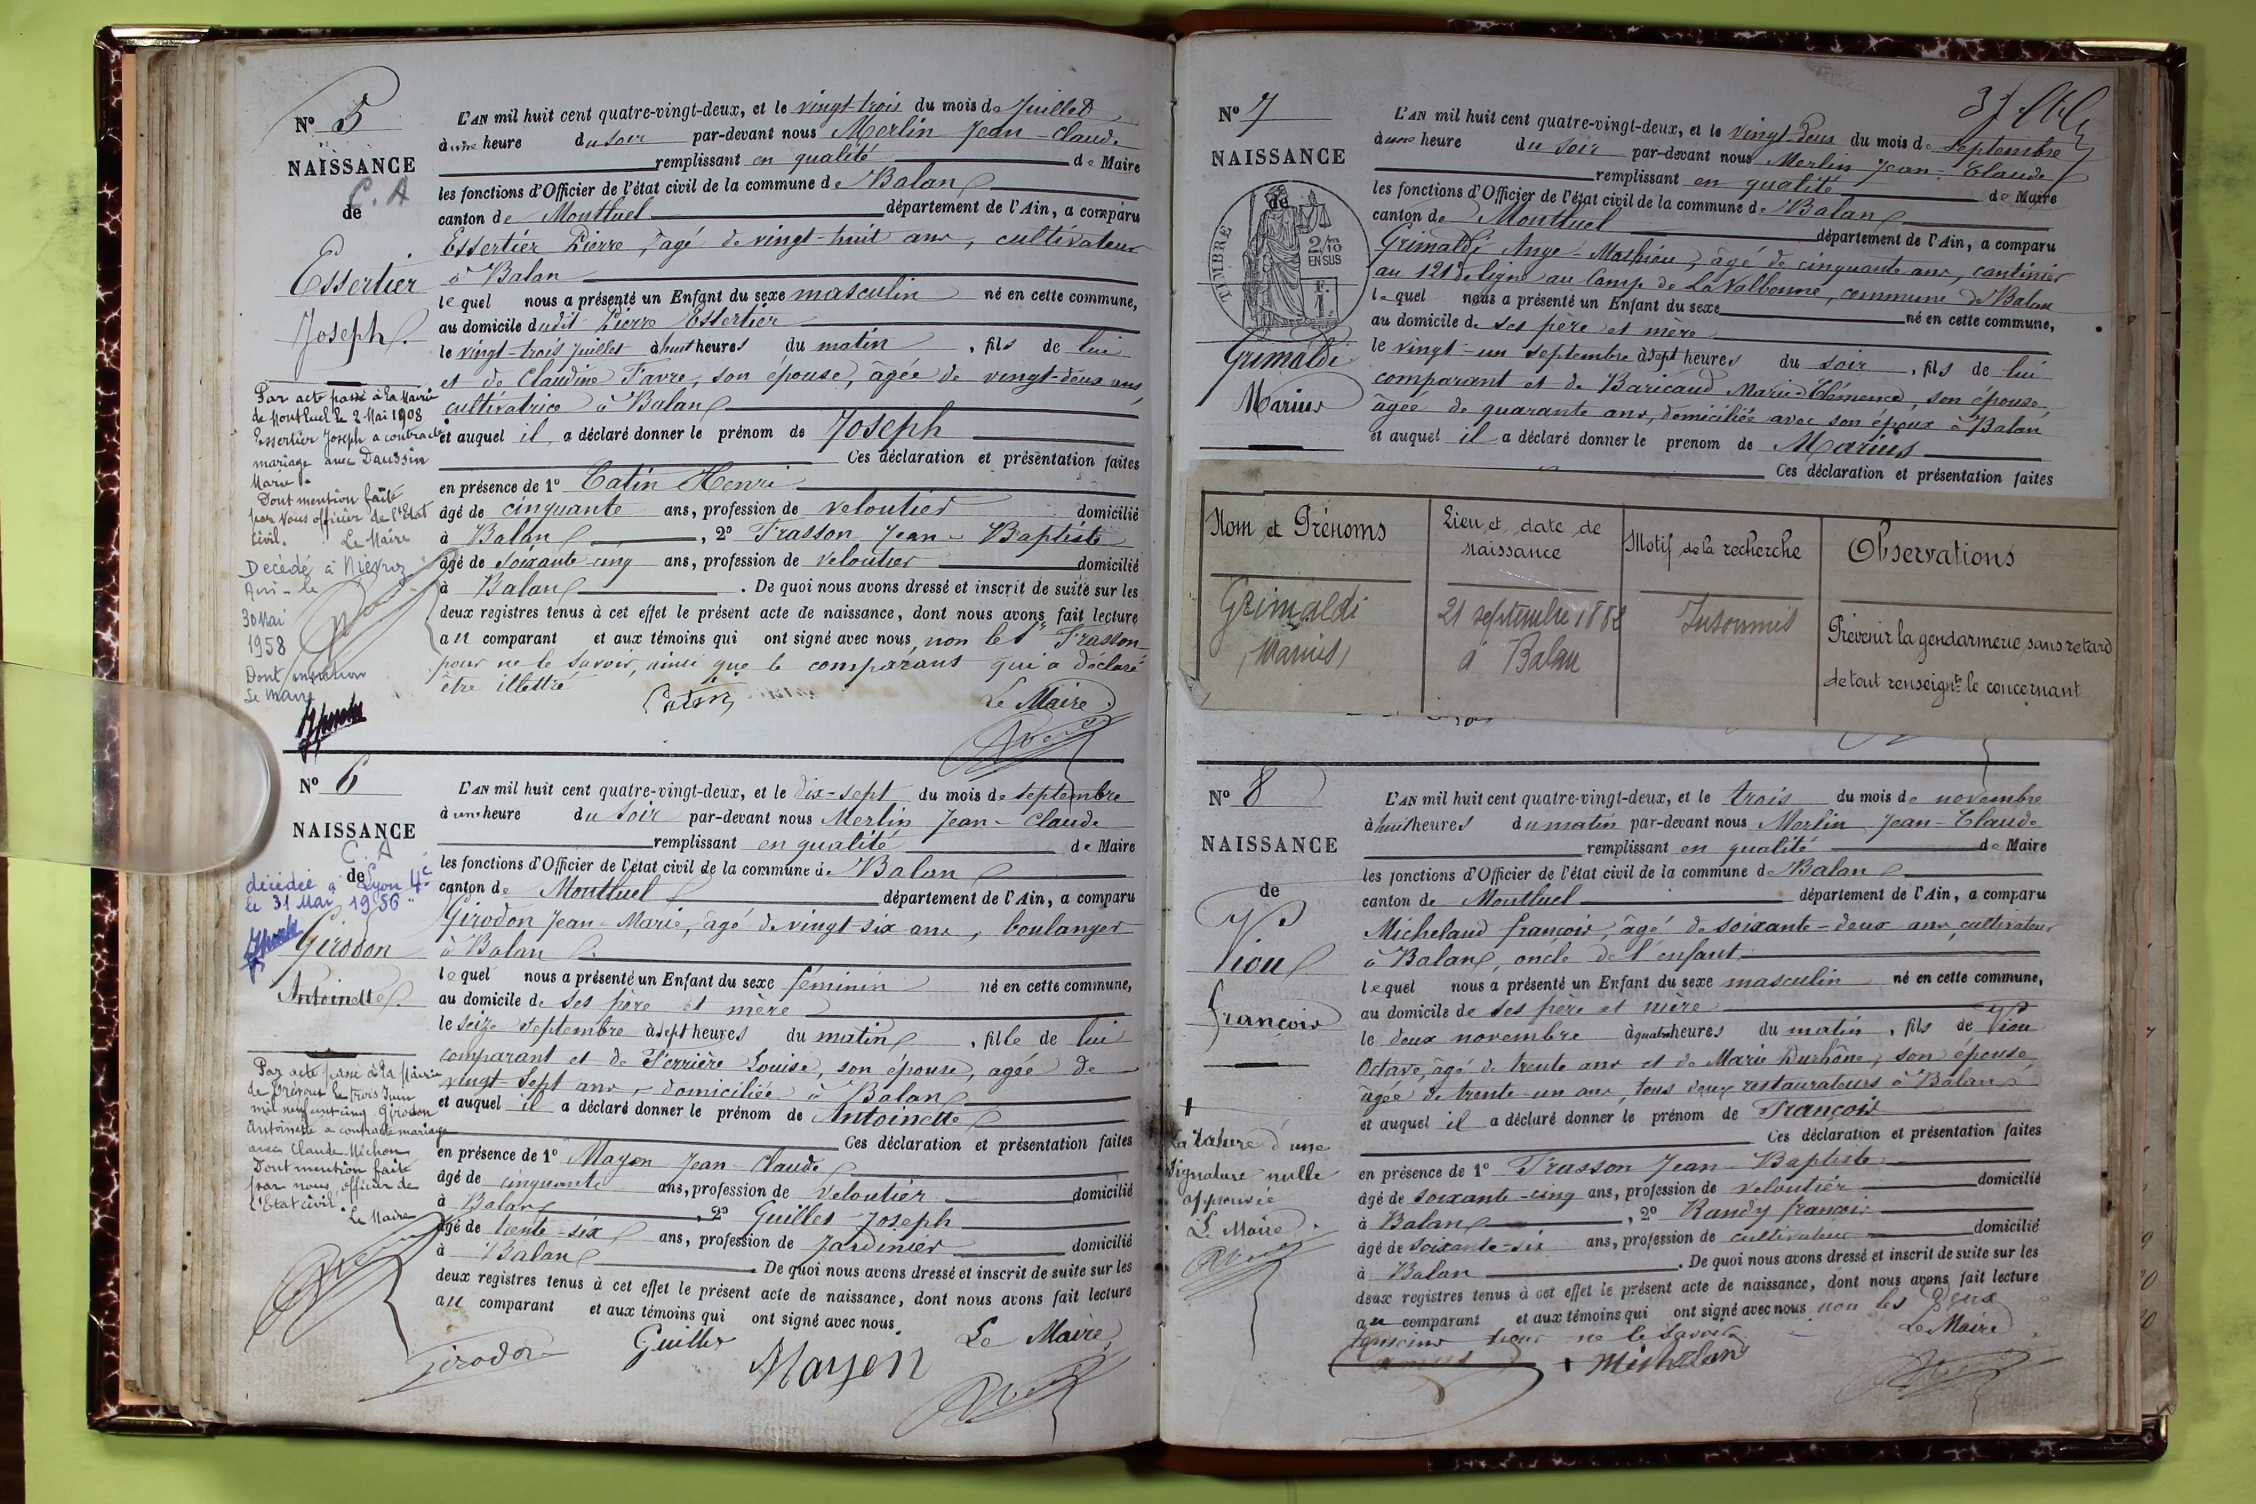 Nº 5
NAISSANCE
C. A
de
Essertier
Joseph.
Par acte passé à la Mairie
de Montluel le 2 Mai 1908
Essertier Joseph a contracté
mariage avec Daussin
Marie.
Dont mention faite
par Nous officier de l'Etat
civil.
Le Maire
Décédé à Niévroz
Ain - le
30 Mai
1958
Dont mention
Le Maire
L'AN mil huit cent quatre-vingt-deux, et le vingt-trois du mois de Juillet
à une heure du soir par-devant nous Merlin Jean-Claude
remplissant en qualité de Maire
les fonctions d'Officier de l'état civil de la commune de Balan
canton de Montluel département de l'Ain, a comparu
Essertier Pierre, âgé de vingt-huit ans, cultivateur
à Balan
lequel nous a présenté un Enfant du sexe masculin né en cette commune,
au domicile dudit Pierre Essertier
le vingt-trois Juillet à huit heures du matin, fils de lui
et de Claudine Favre, son épouse, âgée de vingt-deux ans,
cultivatrice à Balan
et auquel il a déclaré donner le prénom de Joseph
Ces déclaration et présentation faites
en présence de 1º Catin Henri
âgé de cinquante ans, profession de veloutier domicilié
à Balan, 2º Frasson Jean-Baptiste
âgé de soixante cinq ans, profession de veloutier domicilié
à Balan. De quoi nous avons dressé et inscrit de suite sur les
deux registres tenus à cet effet le présent acte de naissance, dont nous avons fait lecture
au comparant et aux témoins qui ont signé avec nous, non le Sr Frasson
pour ne le savoir, ainsi que le comparant qui a déclaré
être illettré
Catin
Le Maire
Nº 6
NAISSANCE
C. A
de
décédée à Lyon 4e
le 31 Mai 1956
Girodon
Antoinette
Par acte passé à la Mairie
de Prévoux le trois Juin
mil neuf cent cinq Girodon
Antoinette a contracté mariage
avec Claude Michon
Dont mention faite
par nous, officier de
l'Etat civil.
Le Maire
L'AN mil huit cent quatre-vingt-deux, et le dix-sept du mois de septembre
à une heure du soir par-devant nous Merlin Jean-Claude
remplissant en qualité de Maire
les fonctions d'Officier de l'état civil de la commune de Balan
canton de Montluel département de l'Ain, a comparu
Girodon Jean-Marie, âgé de vingt-six ans, boulanger
à Balan
lequel nous a présenté un Enfant du sexe féminin né en cette commune,
au domicile de ses père et mère
le seize septembre à sept heures du matin, fille de lui
comparant et de Ferrière Louise, son épouse, âgée de
vingt-sept ans, domiciliée à Balan
et auquel il a déclaré donner le prénom de Antoinette
Ces déclaration et présentation faites
en présence de 1º Mayen Jean-Claude
âgé de cinquante ans, profession de veloutier domicilié
à Balan, 2º Guillet Joseph
âgé de trente-six ans, profession de Jardinier domicilié
à Balan. De quoi nous avons dressé et inscrit de suite sur les
deux registres tenus à cet effet le présent acte de naissance, dont nous avons fait lecture
au comparant et aux témoins qui ont signé avec nous.
Girodon Guillet Mayen Le Maire
Nº 7
NAISSANCE
TIMBRE
2/10
EN SUS
F.
Grimaldi
Marius
L'AN mil huit cent quatre-vingt-deux, et le vingt-deux du mois de septembre
à une heure du soir par-devant nous Merlin Jean-Claude
remplissant en qualité de Maire
les fonctions d'Officier de l'état civil de la commune de Balan
canton de Montluel département de l'Ain, a comparu
Grimaldi Ange-Mathieu, âgé de cinquante ans, cantinier
au 121e de ligne au Camp de La Valbonne, commune de Balan
lequel nous a présenté un Enfant du sexe né en cette commune,
au domicile de ses père et mère
le vingt-un septembre à sept heures du soir, fils de lui
comparant et de Baricaud Marie-Clémence, son épouse,
âgée de quarante ans, domiciliée avec son époux à Balan
et auquel il a déclaré donner le prénom de Marius
Ces déclaration et présentation faites
Nom et Prénoms
Lieu et date de naissance
Motif de la recherche
Observations
Grimaldi
Marius
21 septembre 1882
à Balan
Insoumis
Prévenir la gendarmerie sans retard
de tout renseignt le concernant
Nº 8
NAISSANCE
de
Viou
François
La rature d'une
signature nulle
approuvée
Le Maire
L'AN mil huit cent quatre-vingt-deux, et le trois du mois de novembre
à huit heures du matin par-devant nous Merlin Jean-Claude
remplissant en qualité de Maire
les fonctions d'Officier de l'état civil de la commune de Balan
canton de Montluel département de l'Ain, a comparu
Micheland françois, âgé de soixante-deux ans, cultivateur
à Balan, oncle de l'enfant
lequel nous a présenté un Enfant du sexe masculin né en cette commune,
au domicile de ses père et mère
le deux novembre à quatre heures du matin, fils de Viou
Octave, âgé de trente ans et de Marie Durhône, son épouse
âgée de trente-un ans, tous deux restaurateurs à Balan
et auquel il a déclaré donner le prénom de François
Ces déclaration et présentation faites
en présence de 1º Frasson Jean-Baptiste
âgé de soixante-cinq ans, profession de veloutier domicilié
à Balan, 2º Randy françois
âgé de soixante-six ans, profession de cultivateur domicilié
à Balan. De quoi nous avons dressé et inscrit de suite sur les
deux registres tenus à cet effet le présent acte de naissance, dont nous avons fait lecture
au comparant et aux témoins qui ont signé avec nous non les deux
témoins pour ne le savoir
Le Maire
Micheland